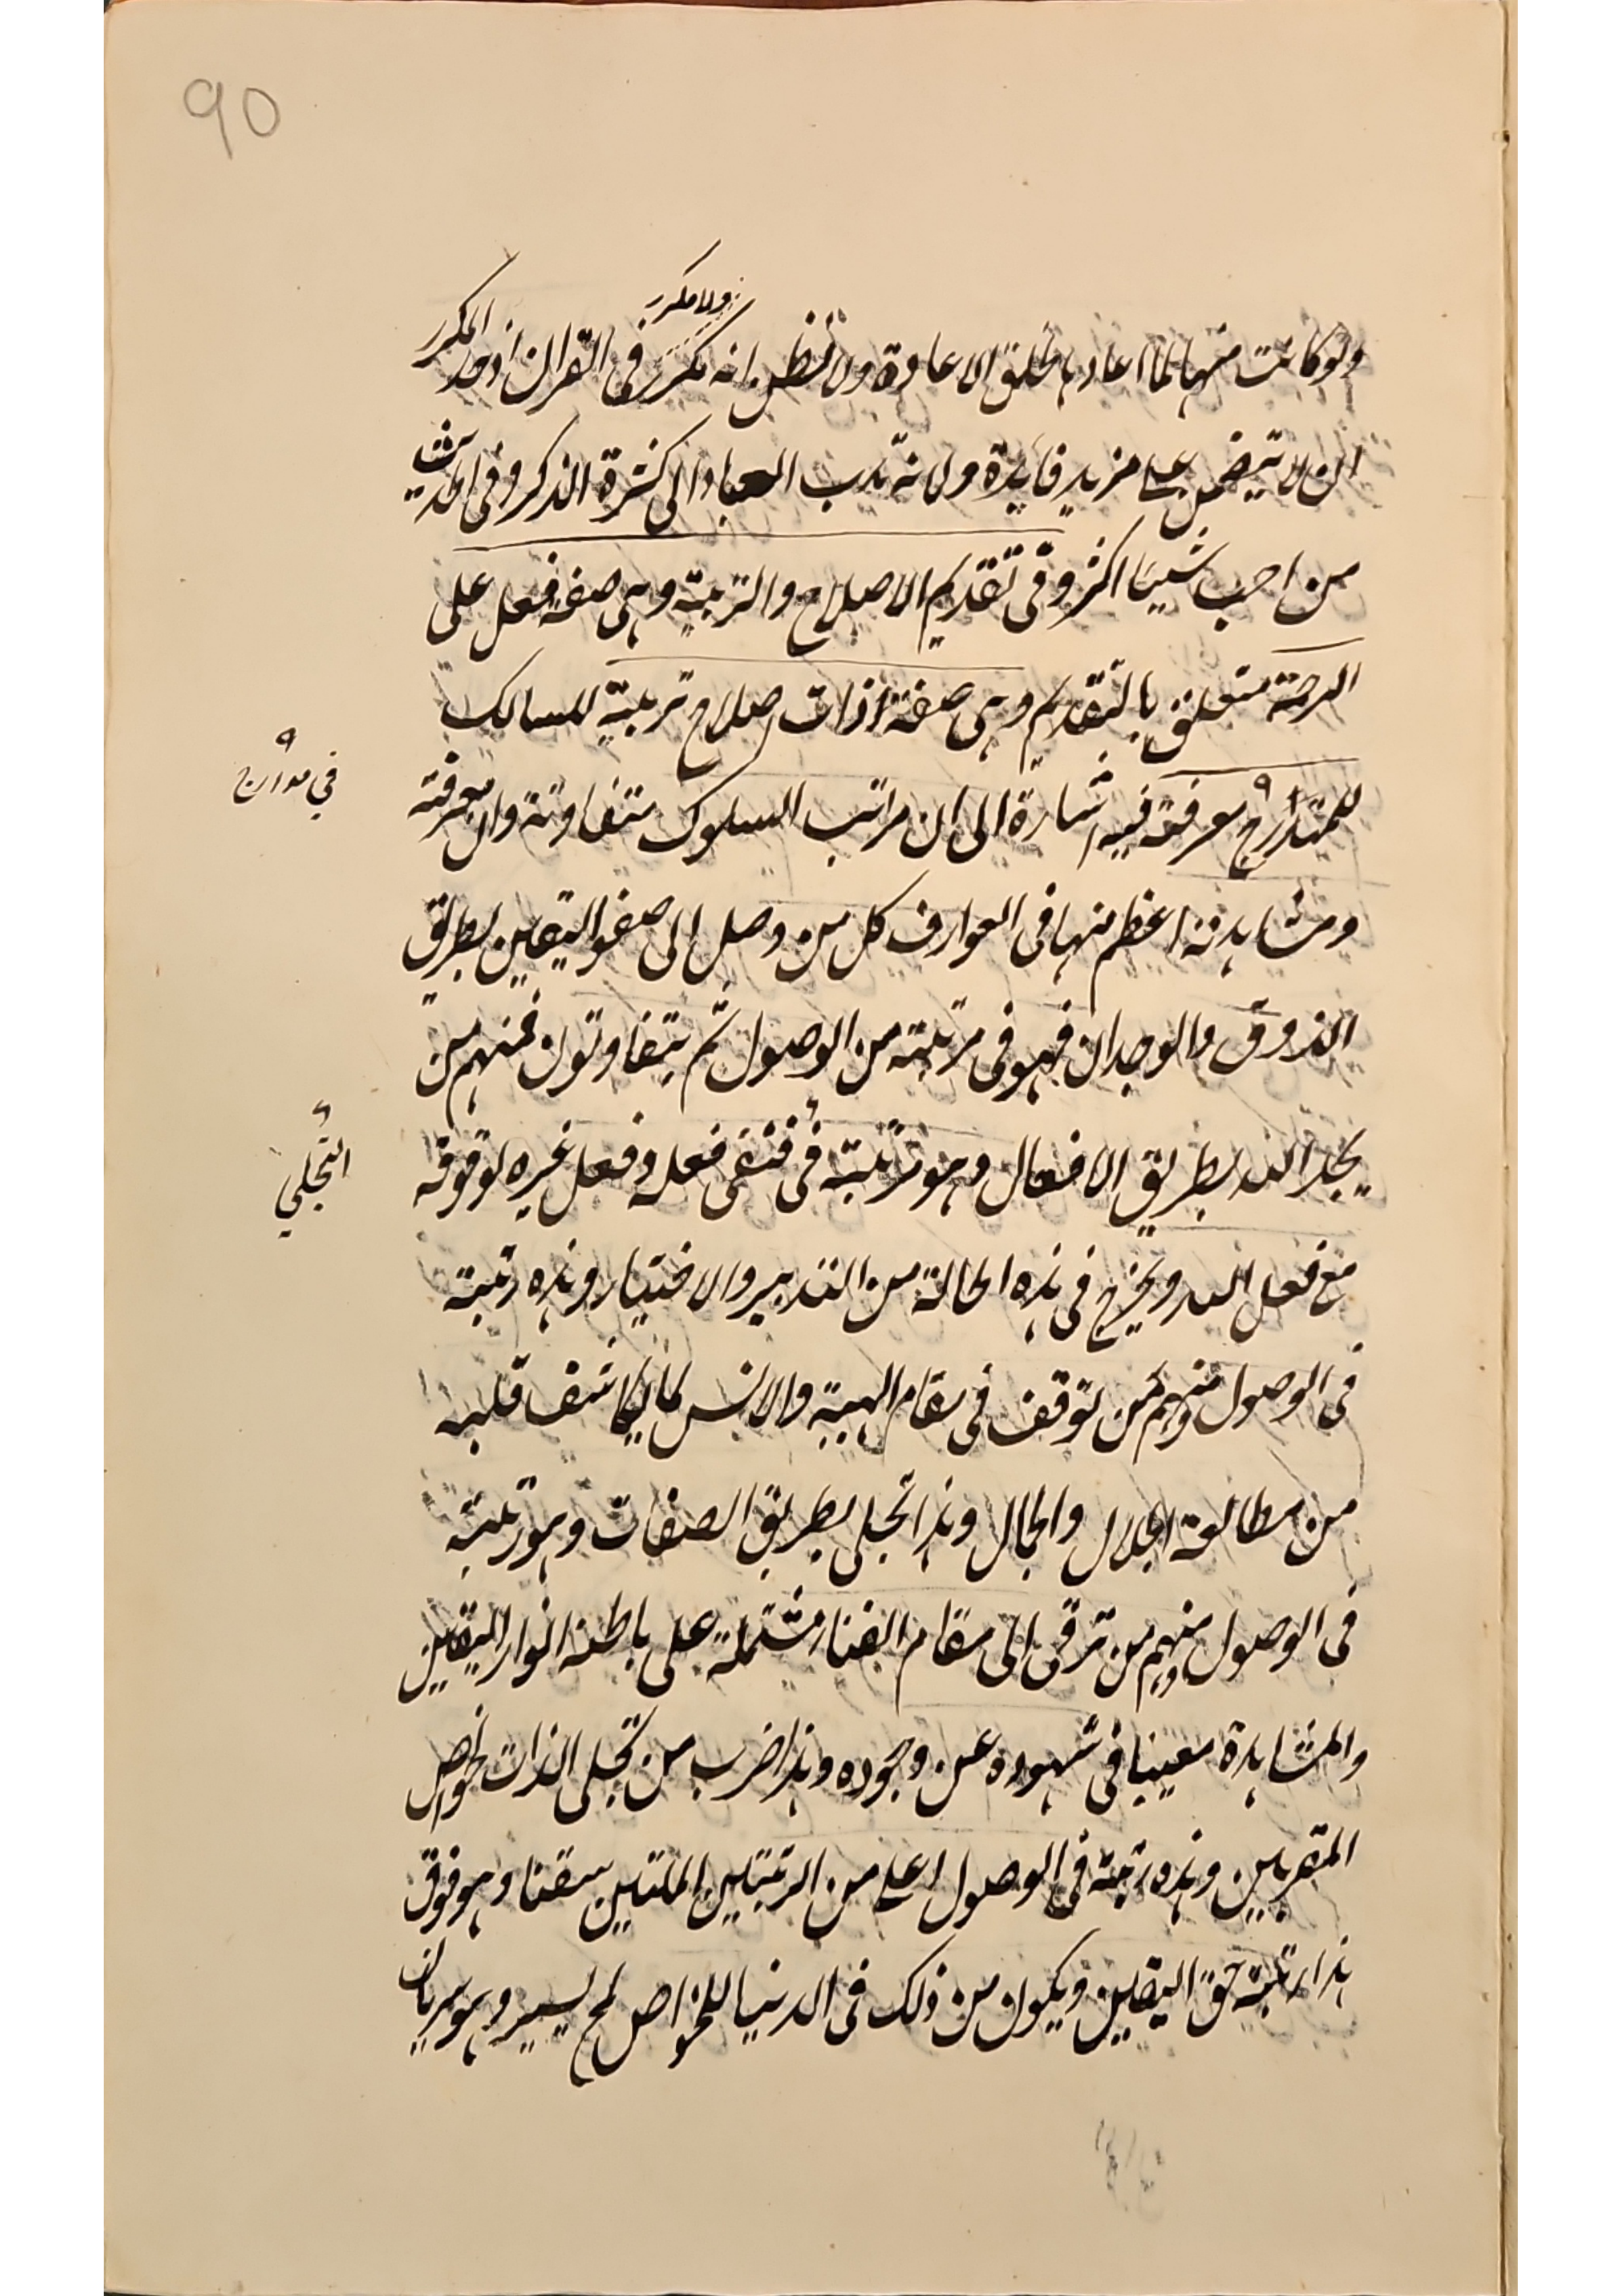 90
ولا مكرر
ولو كانت منها لما اعادها لخلق الاعادة ولا تظن انه تكرر فى القران اذ حد المكرر
ان لا يتضمن على مزيد فايدة ولانه ندب العباد الى كثرة الذكر وفى الحديث
من احب شيئا اكثر وفى تقديم الاصلاح والتربية وهى صفة فعل على
الرحمة متعلق بالتقديم وهى صفة ذات اصلاح تربية للسالك
للمتدرج معرفة فيه اشارة الى ان مراتب السلوك متفاوتة وان معرفته
فى مدارج
ومشاهدته اعظم منها فى العوارف كل من وصل الى صفو اليقين بطريق
الذوق والوجدان فهو فى مرتبة من الوصول ثم يتفاوتون فمنهم من
يجد الله بطريق الافعال وهو مرتبة فى فنفى فعله وفعل غيره لوقوفه
التجلي
مع فعل الله ويخرج فى هذه الحالة من التدبير والاختيار وهذه رتبة
فى الوصول ومنهم من توقف فى مقام الهيبة والانس لما يكاشف قلبه
من مطالعة الجلال والجمال وهذا تجلى بطريق الصفات وهو رتبة
فى الوصول ومنهم من ترقى الى مقام الفناء مشتملة على باطنه انوار اليقين
والمشاهدة مغيبا فى شهوده عن وجوده وهذا ضرب من تجلى الذات لخواص
المقربين وهذه رتبة فى الوصول اعلى من الرتبتين اللتين سبقتا وهو فوق
هذا رتبة حق اليقين ويكون من ذلك فى الدنيا للخواص لمح يسير وهو سريان